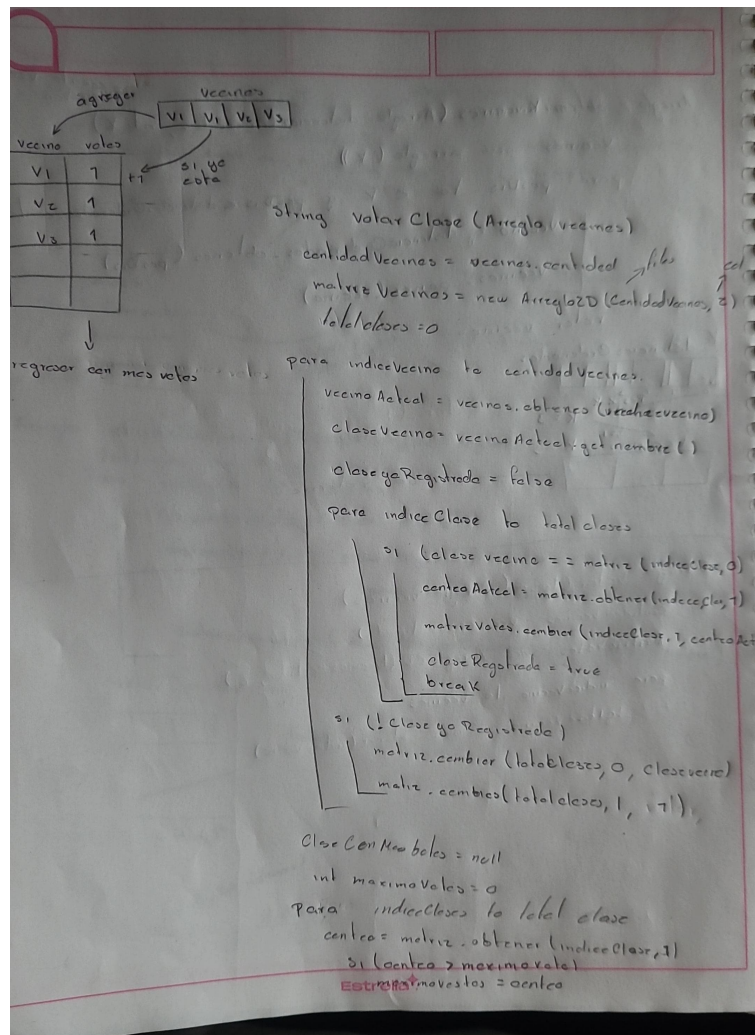 agregar
vecinos
V1 V1 V2 V3
vecino votos
V1 1 +1
si, ya
esta
V2 1
V3 1
regresar con mas votos
string votarClase (Arreglo vecinos)
cantidadVecinos = vecinos.cantidad filas col
matrizVecinos = new Arreglo2D (CantidadVecinos, 2)
totalclases = 0
para indiceVecino to cantidadVecinos
vecinoActual = vecinos.obtener
claseVecino = vecinoActual.getnombre ()
claseyaRegistrada = false
para indiceClase to totalclases
si (clase vecino == matriz (indiceClase, 0)
conteoActual = matriz.obtener
matrizVotos.cambiar (indiceClase, 1, conteoAct
claseRegistrada = true
break
si (!ClaseyaRegistrada)
matriz.cambiar
matriz.cambiar (totalclases, 1,
ClaseConMas = null
int maximoVotos = 0
Para indiceClases to total clase
conteo = matriz.obtener (indiceClase, 1)
si (conteo > maximovoto)
= conteo
Estrella